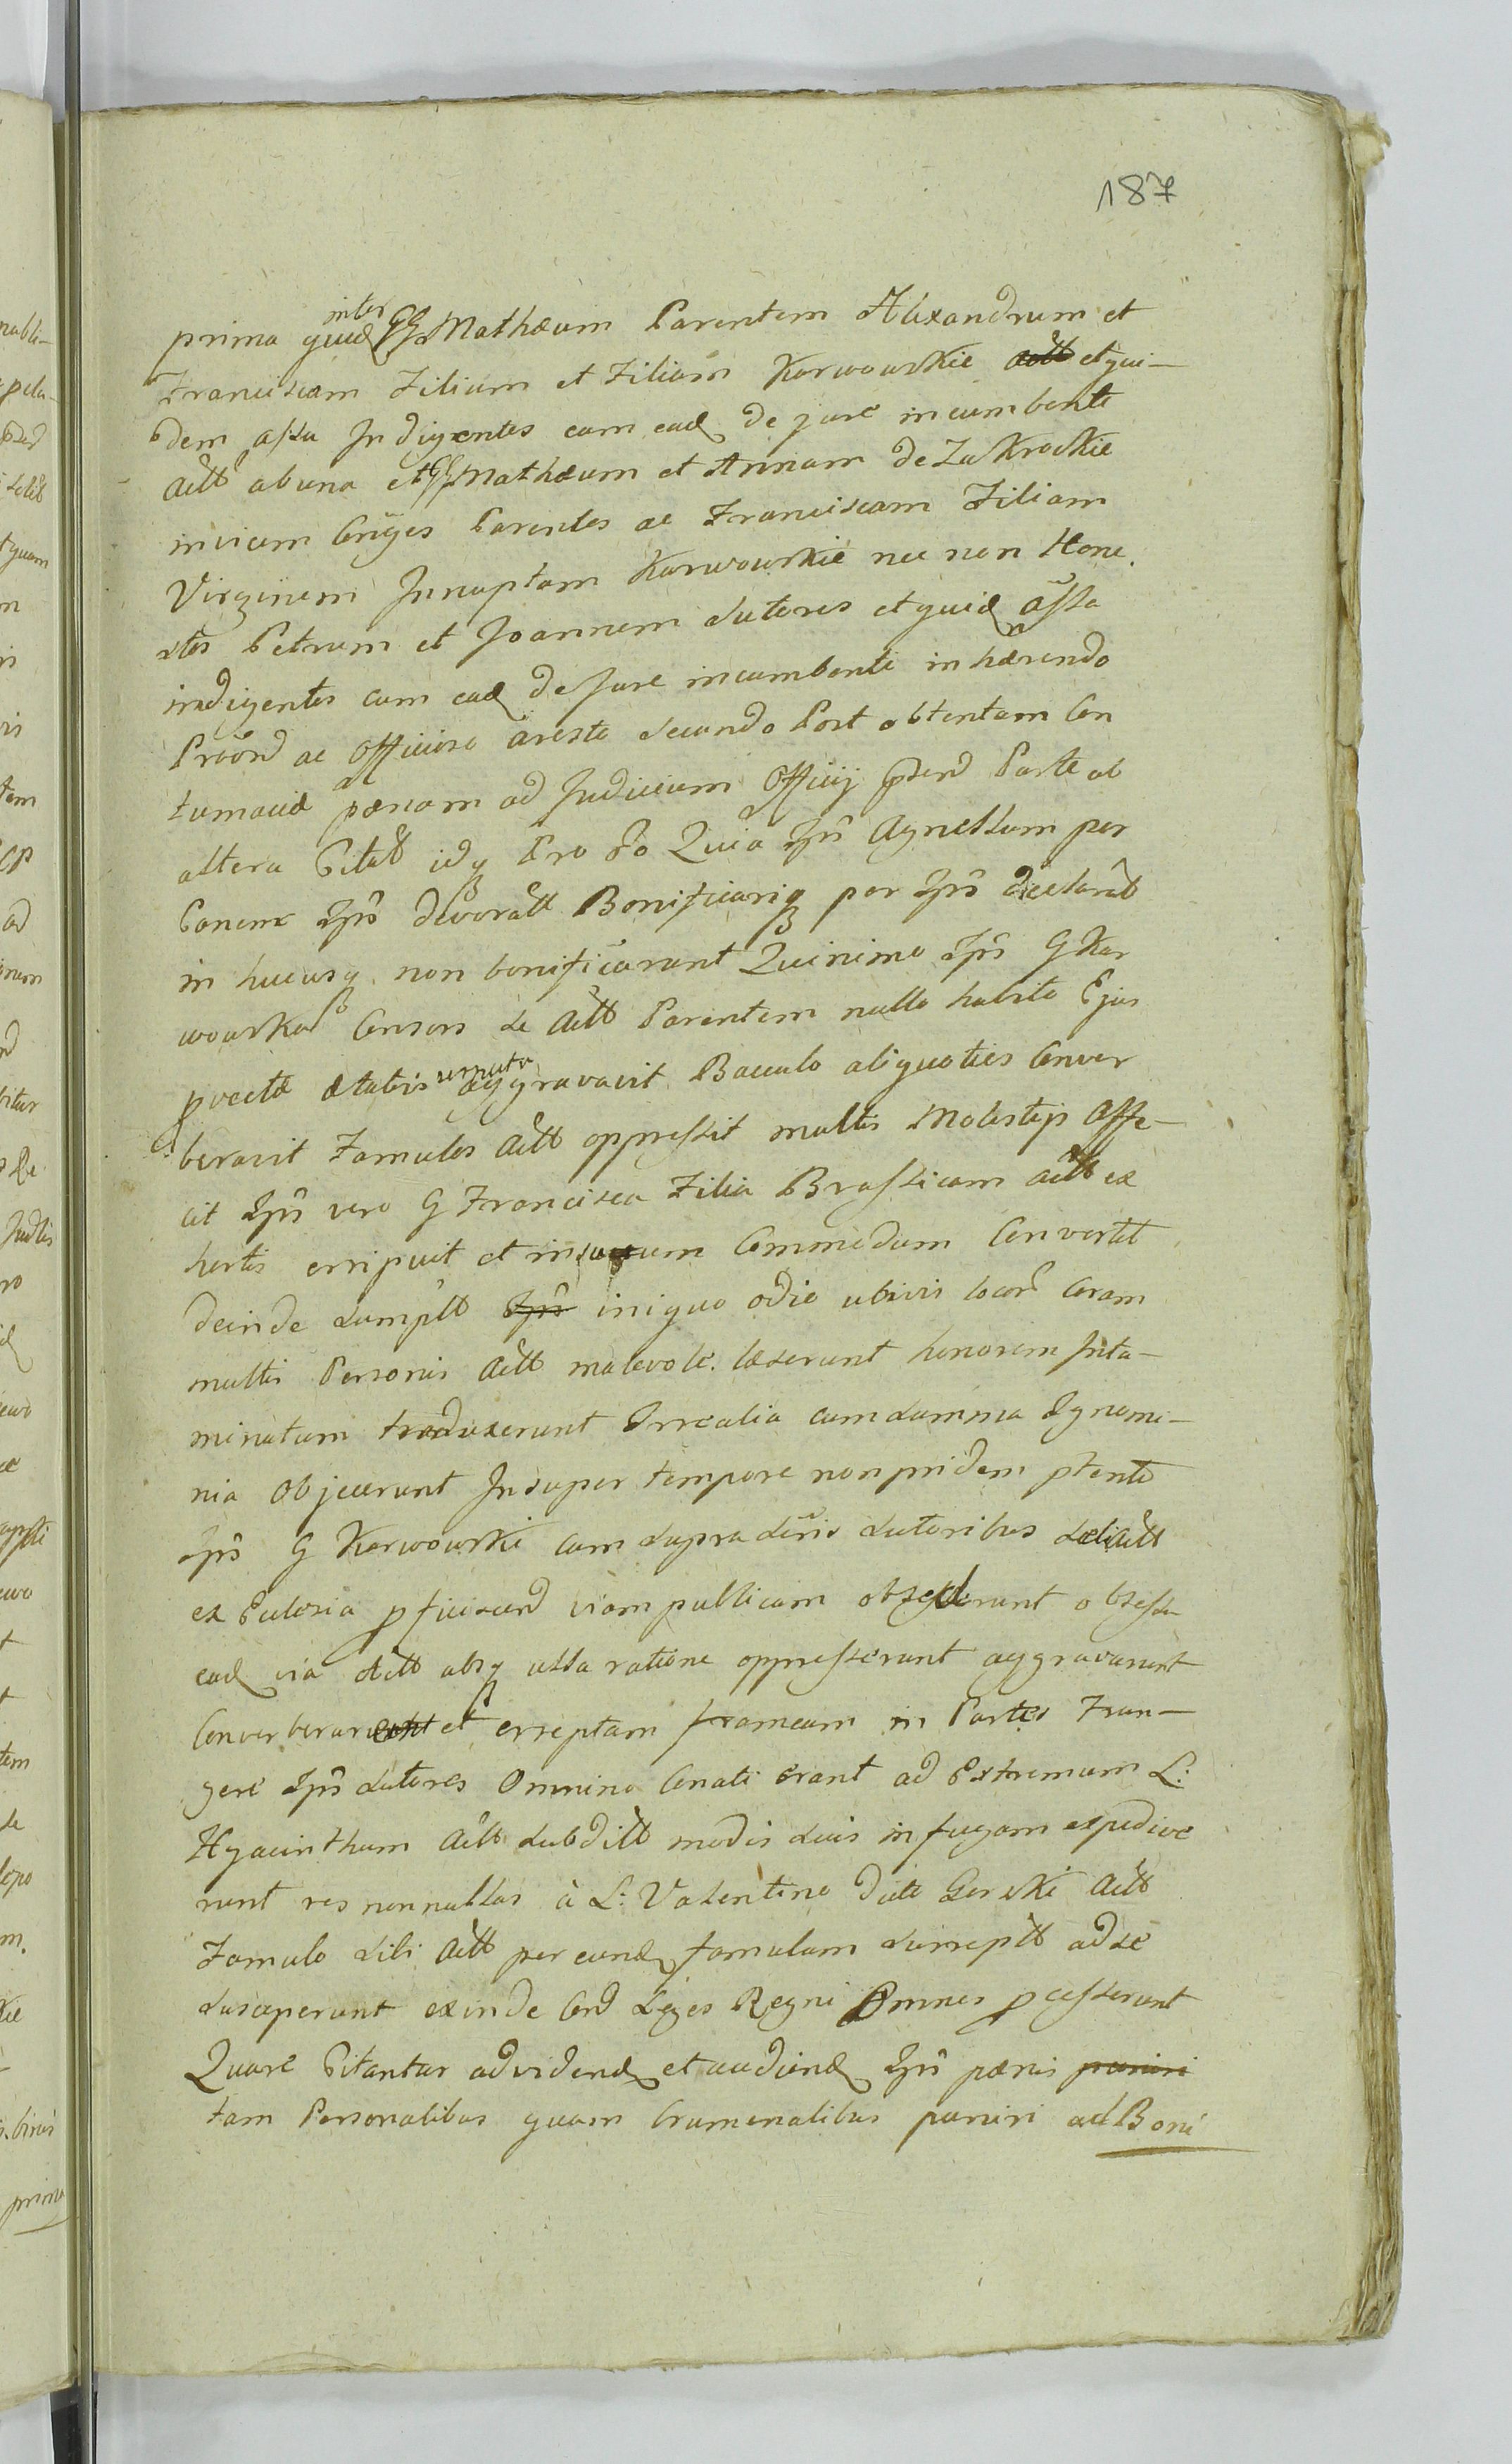 187
prima quid inter GG Mathæum Parentem Alexandrum et
Franciscam Filium et Filiam Karwowskie et qui-
dem assa Indigentes cum ead de jure incumbente
Actt ab una et GG Mathæum et Annam de Zakrockie
invicem Conjges Parentes ac Franciscam Filiam
Virginem Innuptam Karwowskie nec non Hone
stos Petrum et Joannem Sutores et quid assa
indigentes cum ead de Jure incumbenti inhærendo
ac Officioso aresto secundo Post obtentam Con
tumaciæ pænam ad Judicium Officij Parte ab
altera Citat idq Pro eo Quia Ips Agnellum per
Canem Ips devoratt Bonificariq per Ips declarat
in hucusq non bonificarunt Quinimo Ips G Kar
wowska Consors se Actt Parentem nulla habita Ejus
pvectæ ætatis aggravavit Baculo aliquoties Conver
beravit Famulos Actt oppressit multis Molestijs Affe-
cit Ips vero G Francisca Filia Brassicam Actt ex
hortis erripuit et in suum Commodum Convertit
deinde sumptt Ips iniquo odio ubivis locor Coram
multis Personis Actt malevole læserunt honorem Inta-
minatum traduxerunt Irrealia cum summa Ignomi-
nia Objecerunt Insuper tempore non pridem ptento
Ips G Karwowski cum supra Sutoribus Actt
ex Eclesia pficiscend viam publicam obsederunt obsessa
ead via Actt absq ulla ratione oppresserunt aggravarunt
Converberarunt et erreptam frameam in Partes Fran-
gere Ips Sutores Omnino Conati erant ad Extremum L:
Hyacinthum Actt Subditt modis suis in fugam expedive
runt res nonnullas à L: Valentino dicto Gorski Actt
Famulo sibi Actt per eund famulum surreptt ad se
susceperunt exinde Cnd Leges Regni Pænas
Quare Citantur ad vidend et audiend Ips pænis puniri
tam Personalibus quam Crumenalibus puniri ad Boni